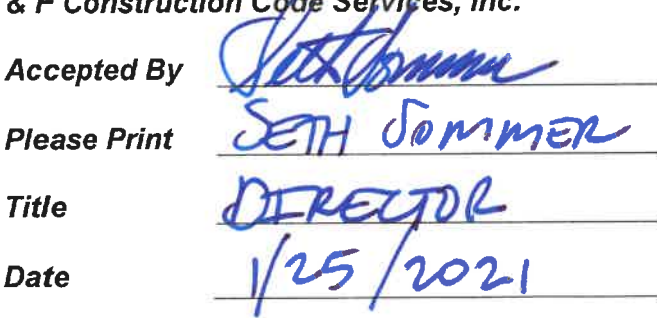 & F Construction Code Services, Inc.
Accepted By Seth Sommer
Please Print SETH SOMMER
Title DIRECTOR
Date 1/25/2021